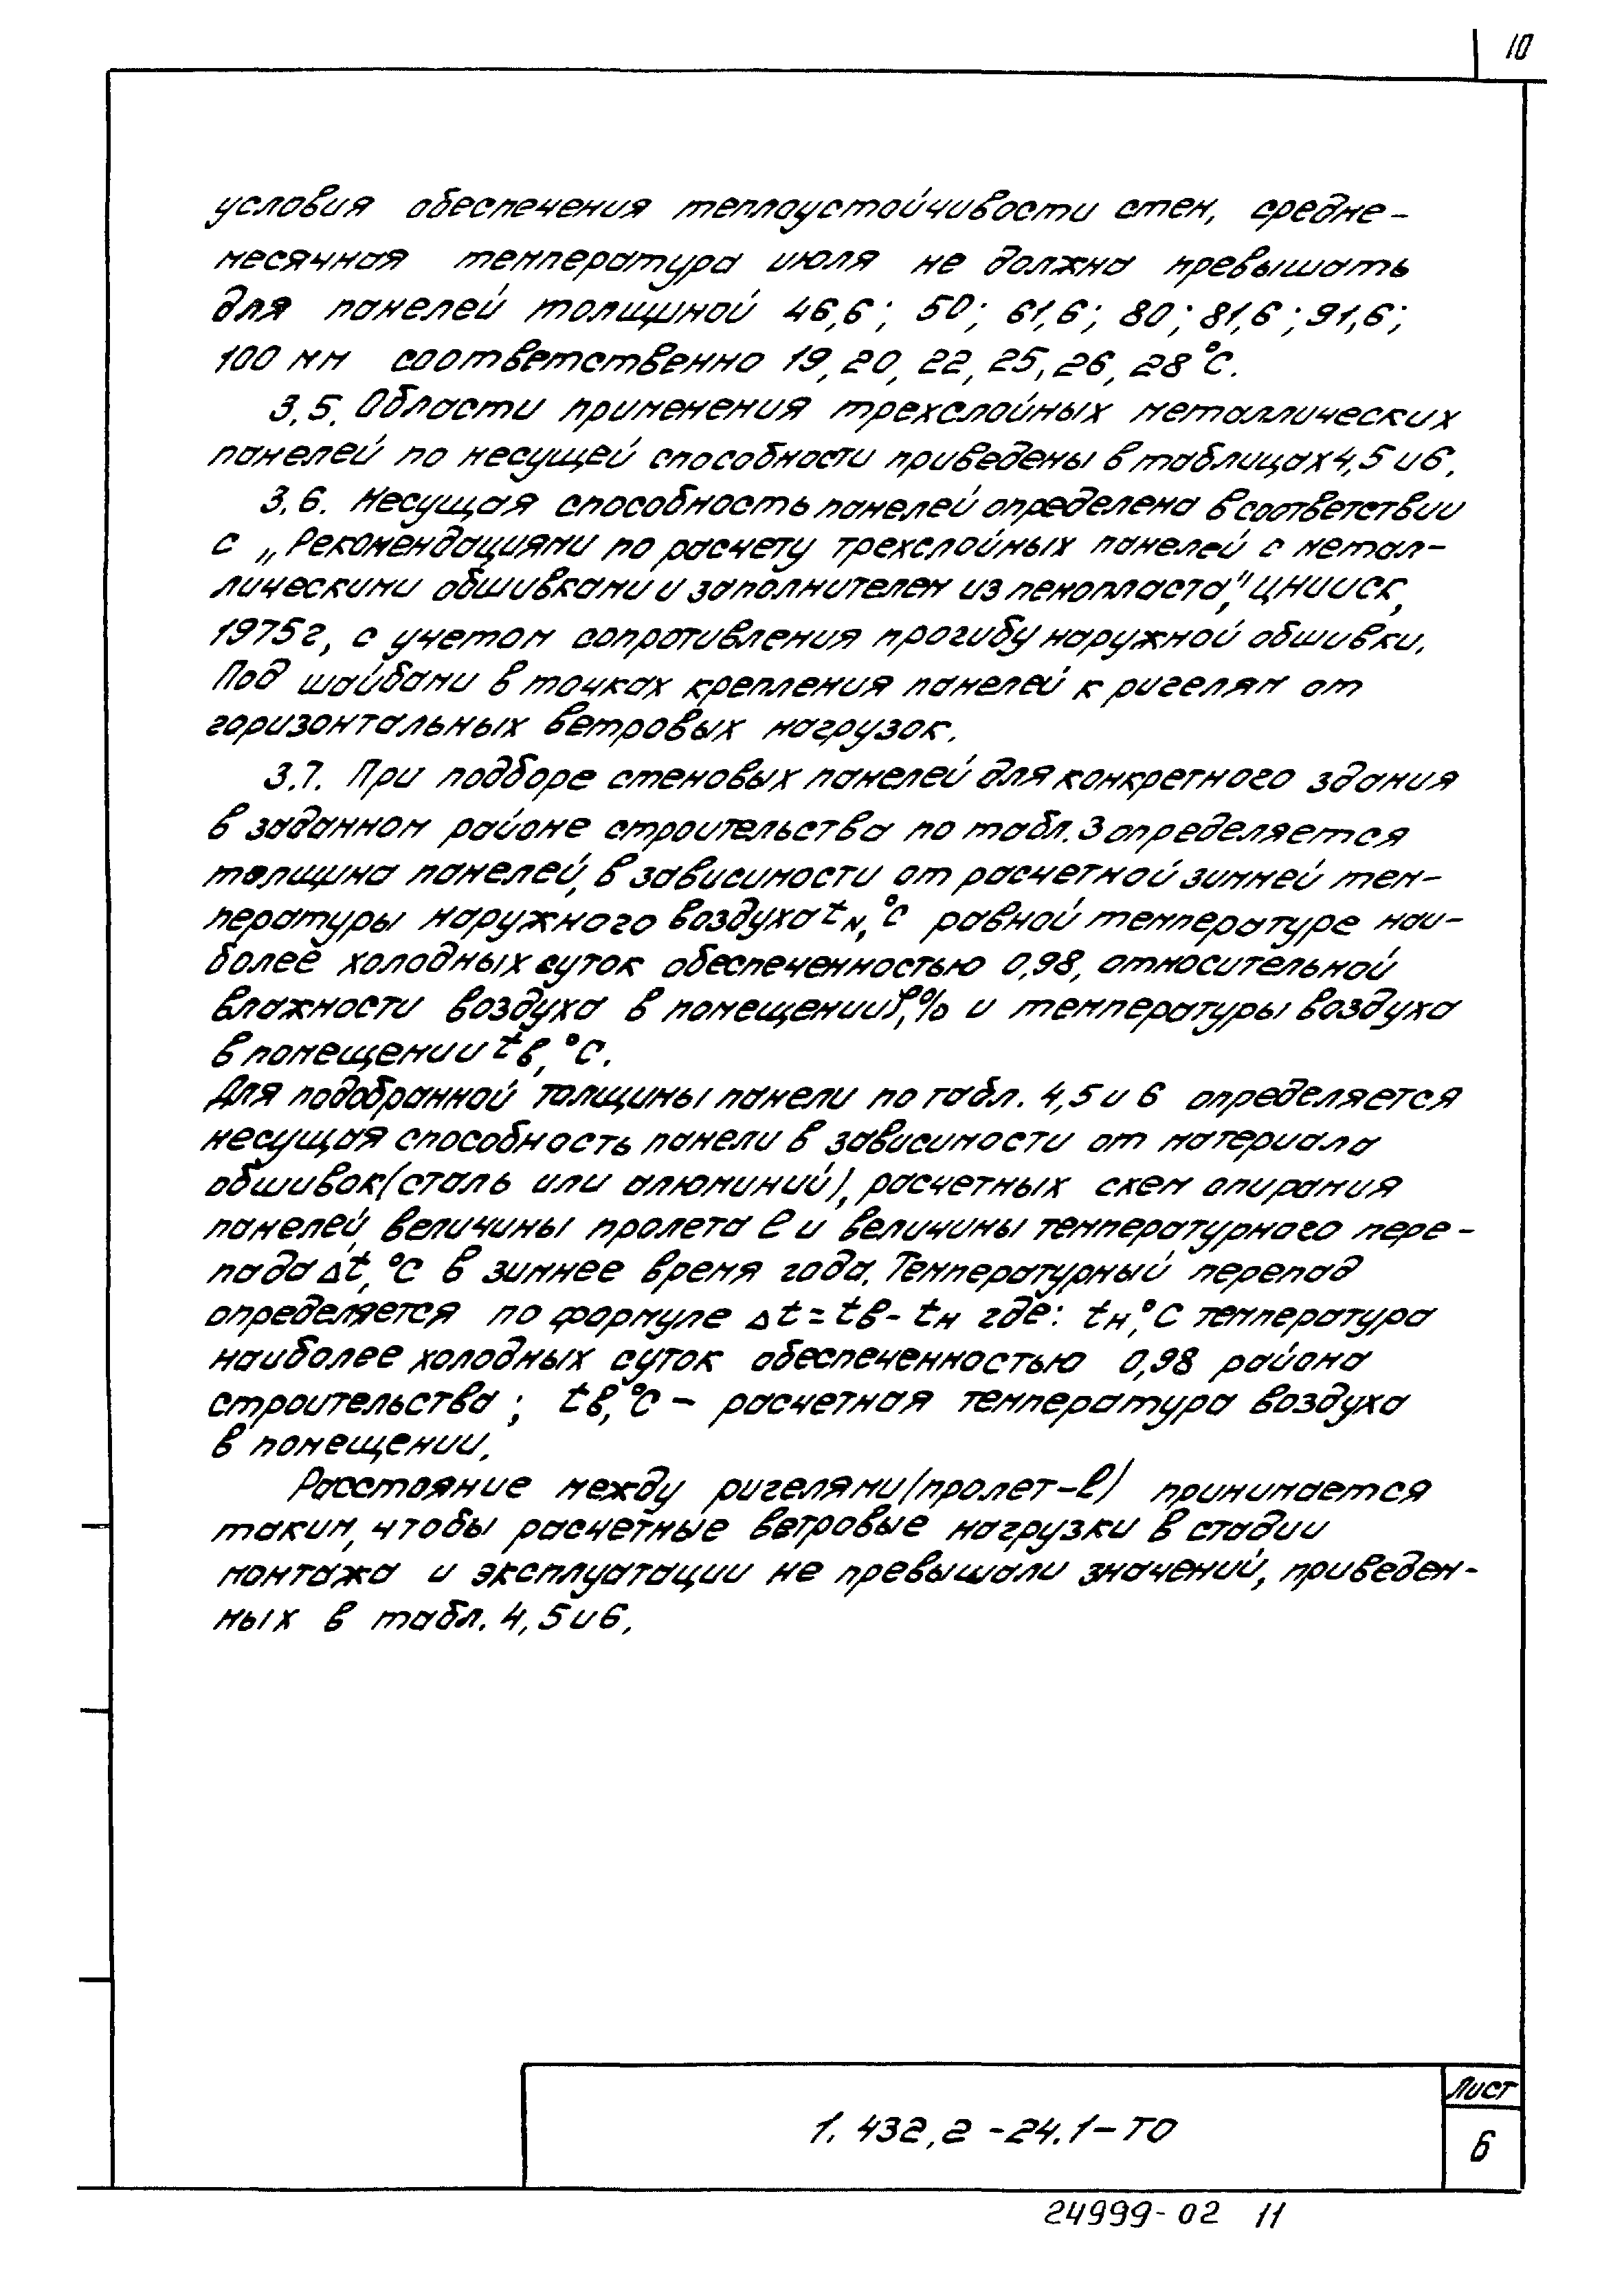 10
условия обеспечения теплоустойчивости стен, средне-
месячная температура июля не должна превышать
для панелей толщиной 46,6; 50; 61,6; 80; 81,6; 91,6;
100 мм соответственно 19, 20, 22, 25, 26, 28°С.
3.5. Области применения трехслойных металлических
панелей по несущей способности приведены в таблицах 4,5 и 6.
3.6. Несущая способность панелей определена в соответствии
с „Рекомендациями по расчету трехслойных панелей с метал-
лическими обшивками и заполнителем из пенопласта," ЦНИИСК,
1975г, с учетом сопротивления прогибу наружной обшивки.
Под шайбами в точках крепления панелей к ригелям от
горизонтальных ветровых нагрузок.
3.7. При подборе стеновых панелей для конкретного здания
в заданном районе строительства по табл. 3 определяется
толщина панелей, в зависимости от расчетной зимней тем-
пературы наружного воздуха tн,°С равной температуре наи-
более холодных суток обеспеченностью 0,98, относительной
влажности воздуха в помещении φ,% и температуры воздуха
в помещении tв,°С.
Для подобранной толщины панели по табл. 4,5 и 6 определяется
несущая способность панели в зависимости от материала
обшивок (сталь или алюминий), расчетных схем опирания
панелей, величины пролета ℓ и величины температурного пере-
пада Δt,°С в зимнее время года. Температурный перепад
определяется по формуле Δt = tв - tн где: tн,°С температура
наиболее холодных суток обеспеченностью 0,98 района
строительства; tв,°С - расчетная температура воздуха
в помещении.
Расстояние между ригелями (пролет-ℓ) принимается
таким, чтобы расчетные ветровые нагрузки в стадии
монтажа и эксплуатации не превышали значений, приведен-
ных в табл. 4, 5 и 6.
Лист
1.432.2-24.1-ТО
6
24999-02 11